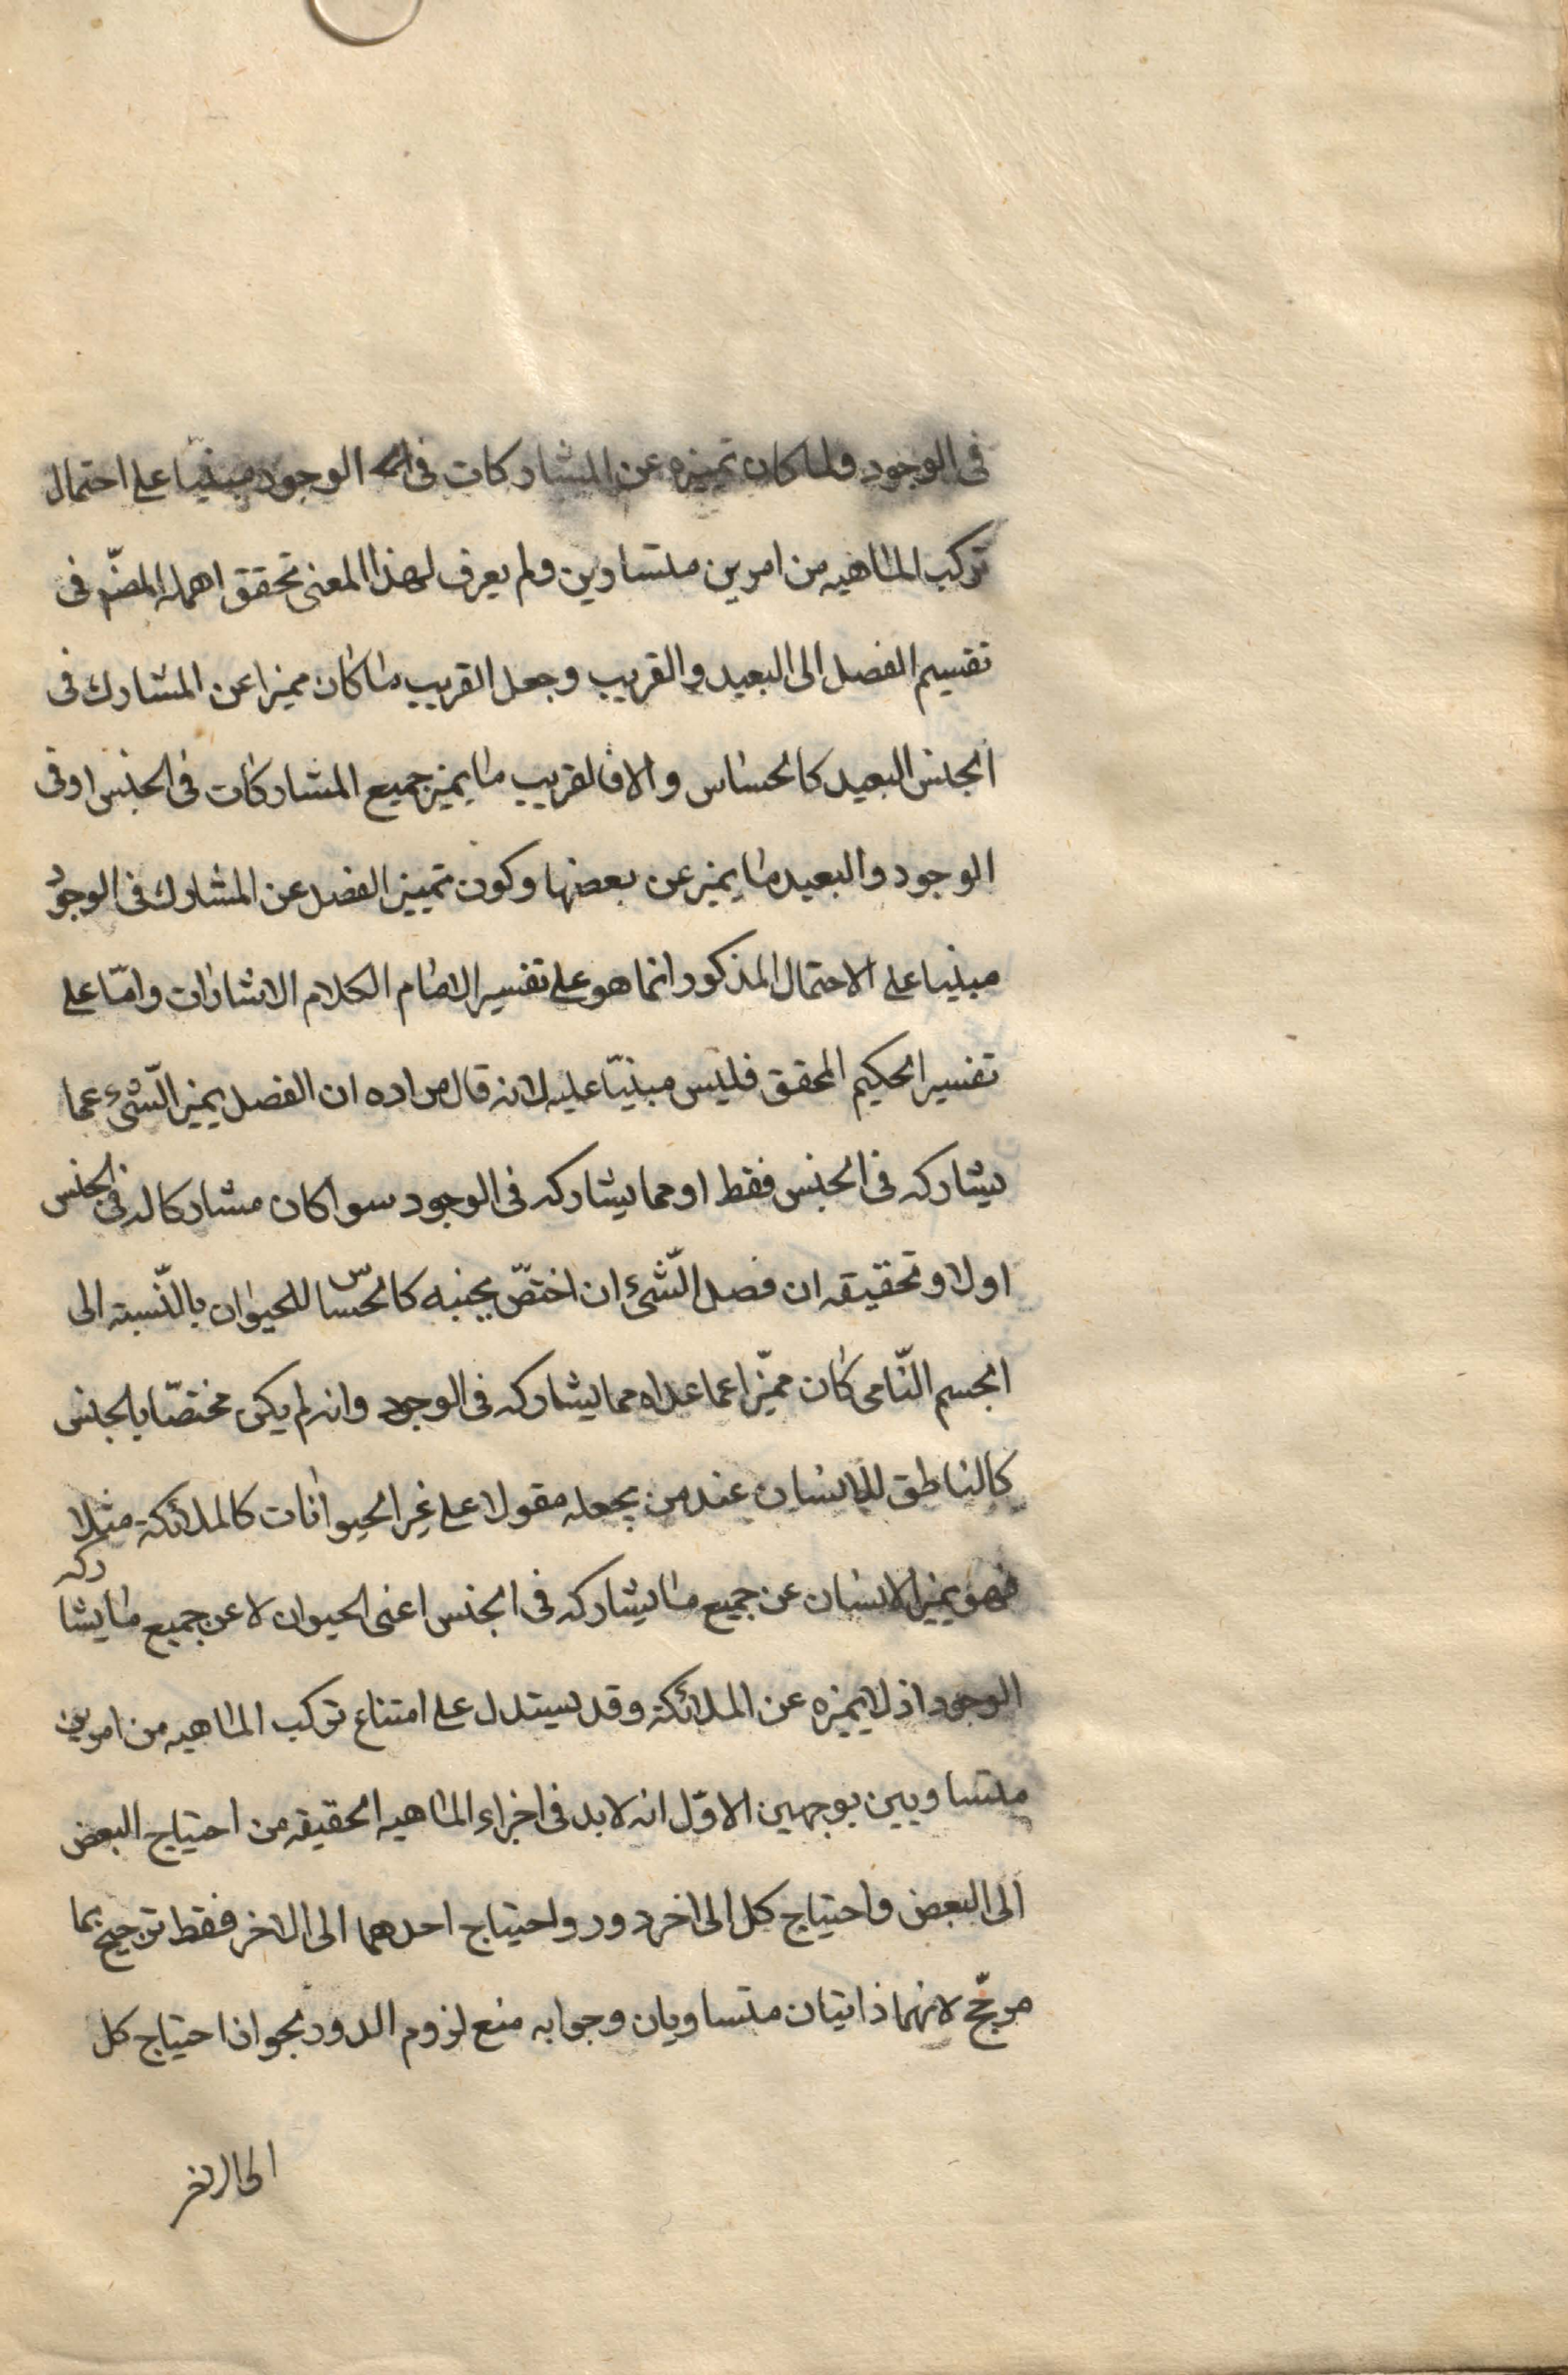 فى الوجود ولما كان تميزه عن المشاركات فى الوجود مبنيّا على احتمال
تركب الماهيه من امرين متساوين ولم يعرف لهذا المعنى تحقق اهمله المصّ فى
تقسيم الفصل الى البعيد والقريب وجعل القريب ما كان مميزا عن المشارك فى
الجنس البعيد كالحساس والا فالقريب ما يميز جميع المشاركات فى الجنس او فى
الوجود والبعيد ما يميز عن بعضها وكون تمييز الفصل عن المشارك فى الوجود
مبنيا على الاحتمال المذكور انما هو على تفسير الامام الكلام الاشارات وامّا على
تفسير الحكيم المحقق فليس مبنيّا عليه لانه قال مراده ان الفصل يميز الشّئ عما
يشاركه فى الجنس فقط او مما يشاركه فى الوجود سوا كان مشاركا له فى الجنس
اولا وتحقيقه ان فصل الشّئ ان اختصّ بجنسه كالحساس للحيوان بالنّسبته الى
الجسم النّامى كان مميّزا عما عداه مما يشاركه فى الوجود وانه لم يكن مختصّا بالجنس
كالناطق للانسان عند من يجعله مقولا على غير الحيوانات كالملائكة مثلا
فهو يميز الانسان عن جميع ما يشاركه فى الجنس اعنى الحيوان لا عن جميع ما يشاركه
الوجود اذ لا يميزه عن الملائكة وقد يستدل على امتناع تركب الماهيه من امرين
متساويين بوجهين الاوّل انه لابد فى اجزاء الماهيه الحقيقه من احتياج البعض
الى البعض واحتياج كل الى اخر دور واحتياج احدهما الى الاخر فقط ترجيح بما
مرجّح لانهما ذاتيتان متساويان وجوابه منع لزوم الدور بجواز احتياج كل
الى الاخر